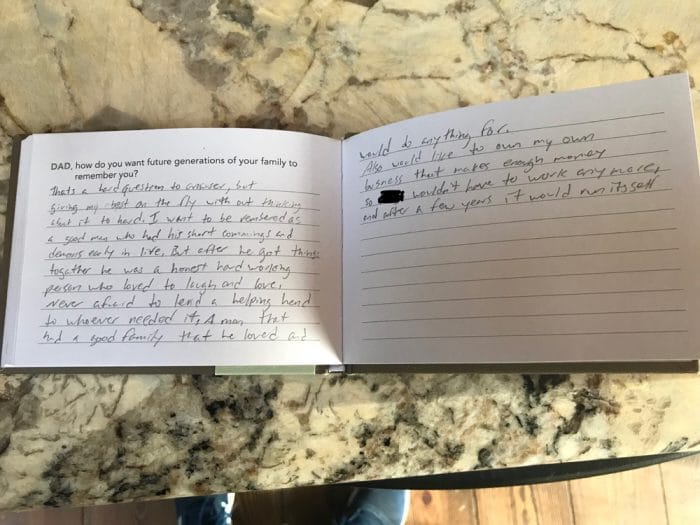 DAD, how do you want future generations of your family to
remember you?
Thats a hard question to answer, but
giving my best on the fly with out thinking
about it to hard. I want to be remembered as
a good man who had his short commings and
demons early in life, But after he got things
together he was a honest hard working
person who loved to laugh and love,
Never afraid to lend a helping hand
to whoever needed it, A man that
had a good family that he loved and
would do anything for.
Also would like to own my own
business that makes enough money
so wouldn't have to work any more,
and after a few years it would run itself